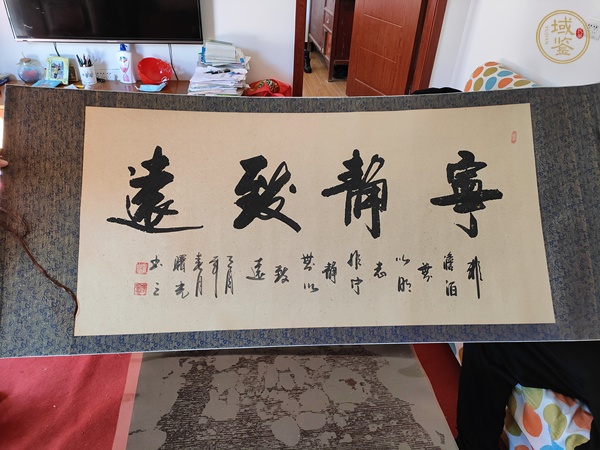 寧靜致遠
非
澹泊
無
以明
志
非宁
靜
無以
致
遠
年
春月
光
书之
域鉴